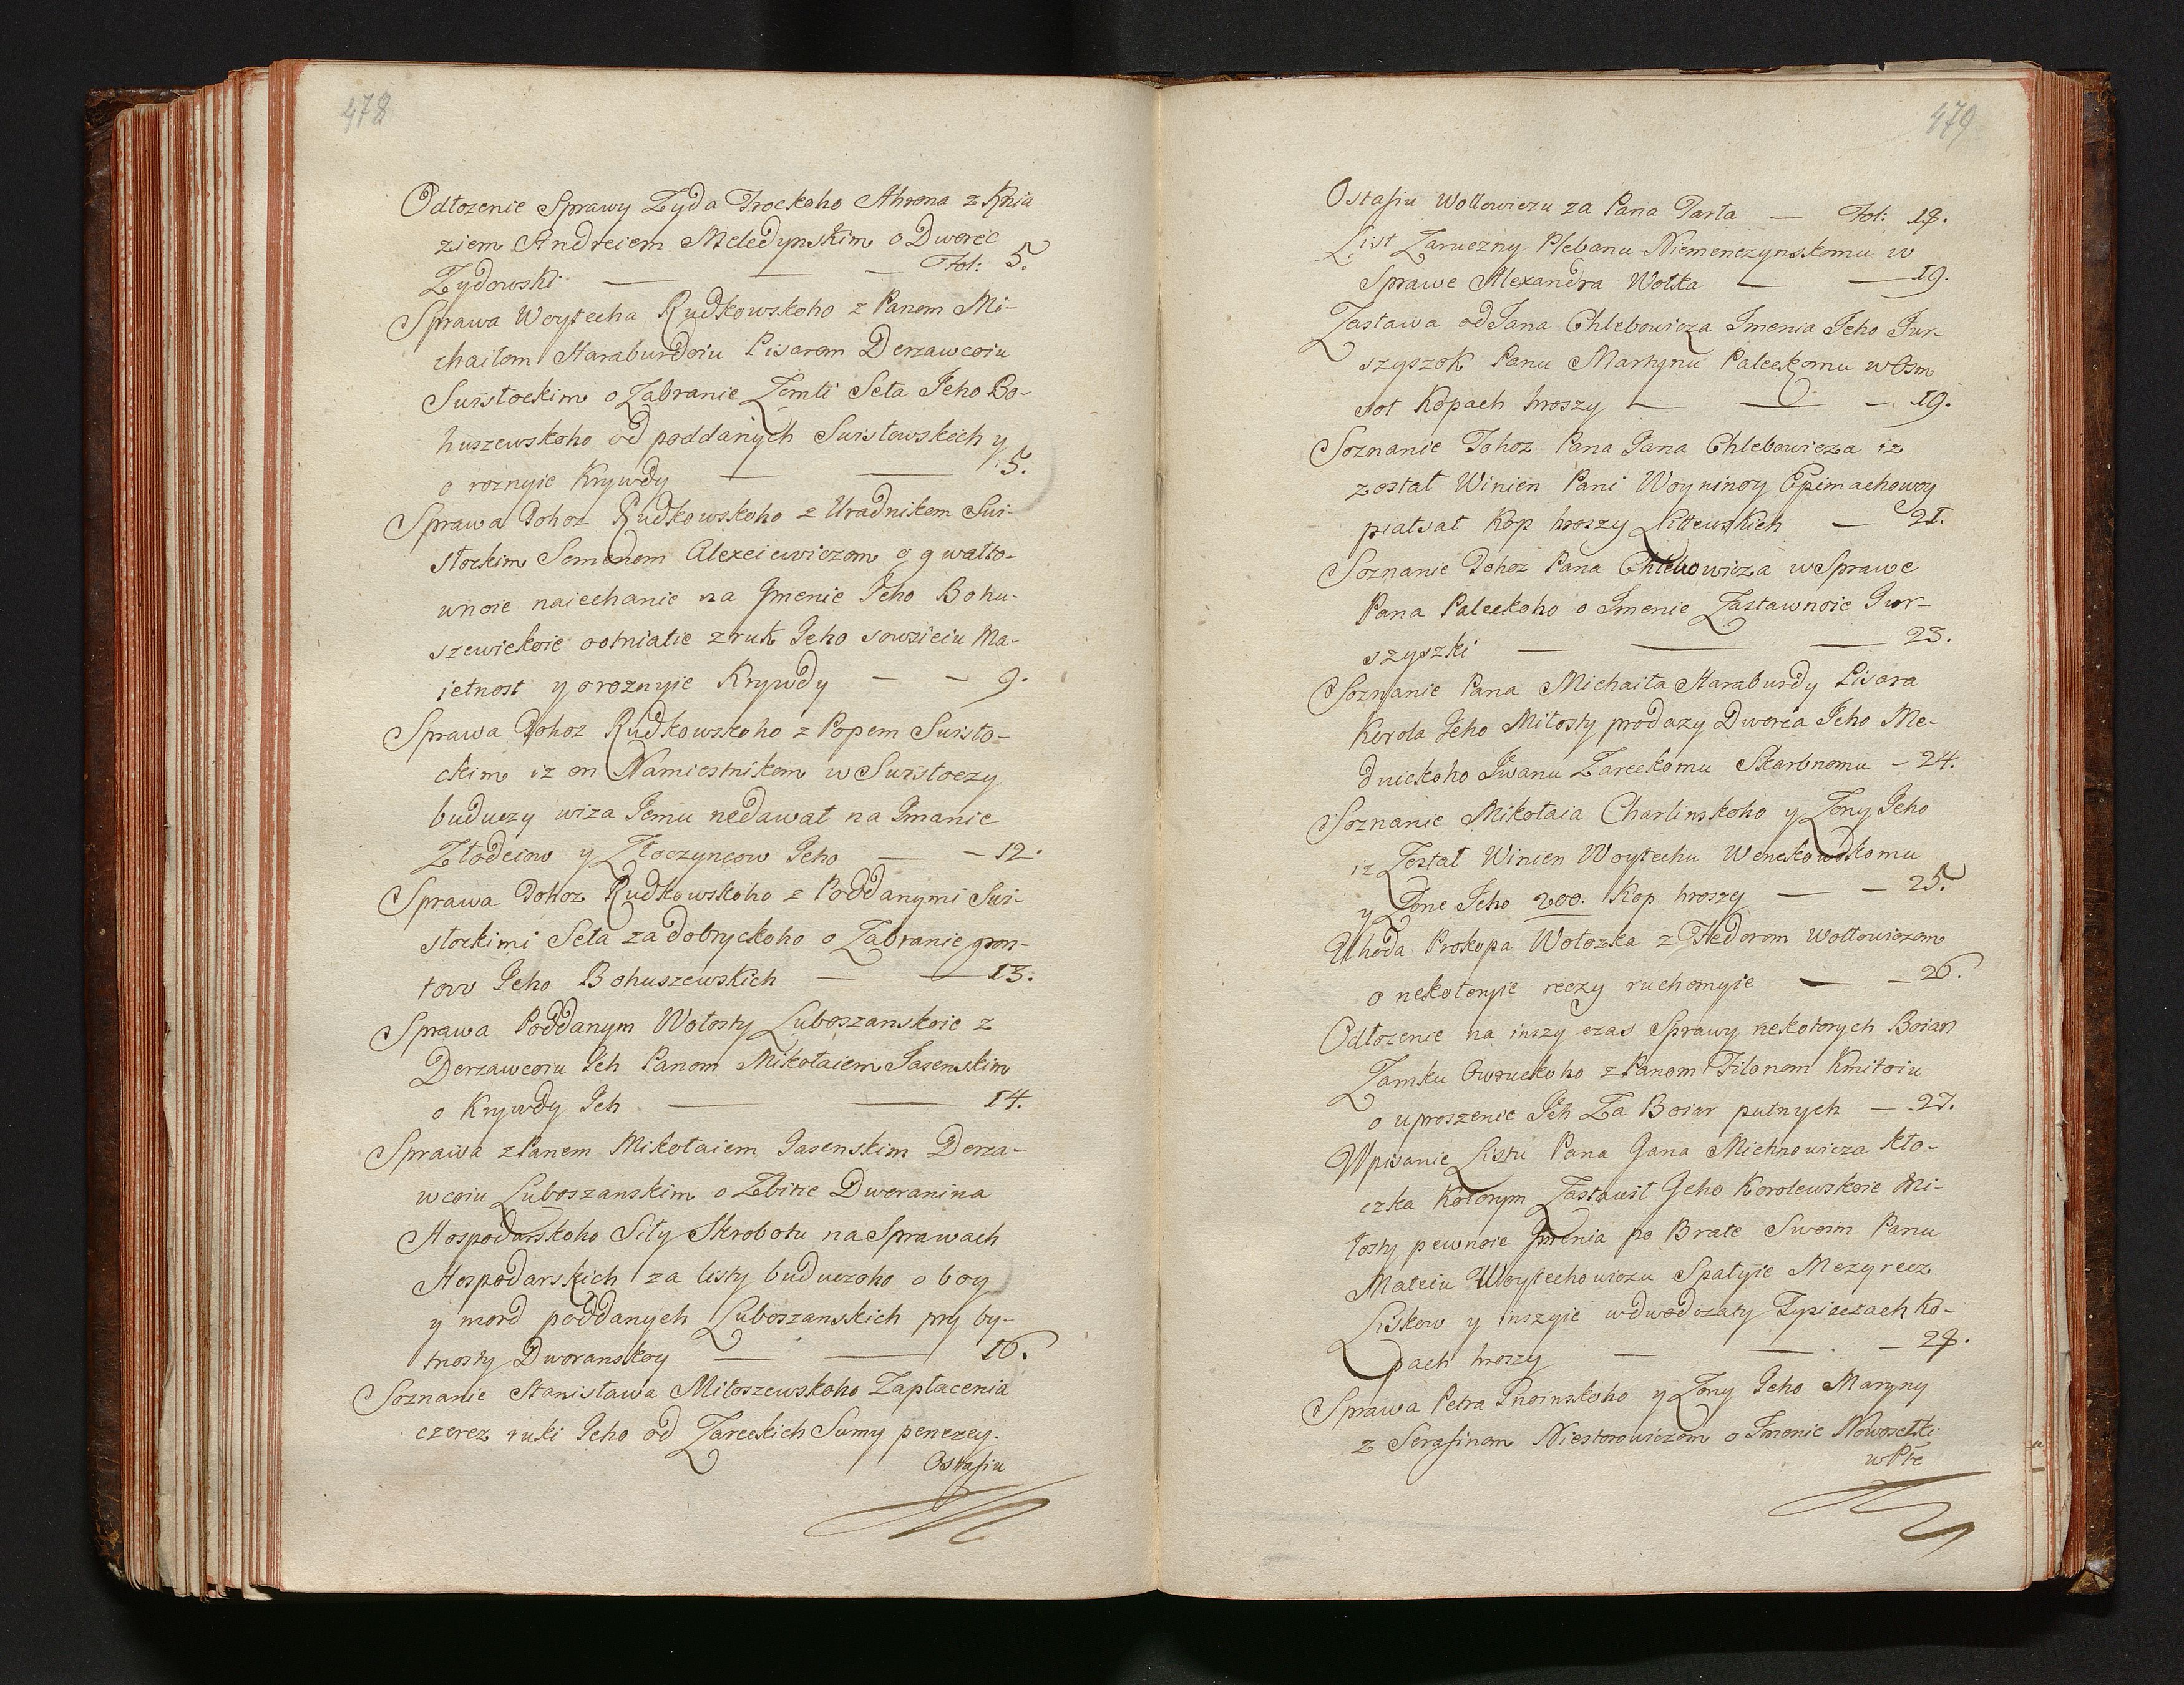 478
Odłozenie Sprawy Zyda Trockoho Ahrona z Knia
ziem Andreiem Meledynskim o Dworec
Zydowski — — — Fol: 5.
Sprawa Woytecha Rudkowskoho z Panom Mi-
chaiłom Haraburdoiu Pisarom Derzawcoiu
Swisłockim o Zabranie Zemli Seła Jeho Bo-
huszewskoho od poddanych Swisłowskich y
o roznyie Krywdy — — 5.
Sprawa Tohoz Rudkowskoho z Uradnikom Swi-
słockim Semenom Alexeiewiczom o gwałto-
wnoie naiechanie na Jmenie Jeho Bohu-
szewickoie o otniatie z ruk Jeho sowsieiu Ma-
ietnost y o roznyie Krywdy — — 9.
Sprawa Tohoz Rudkowskoho z Popem Swisło-
ckim iz on Namiestnikom w Swisłoczy
buduczy wiza Jemu nedawał na Jmanie
Złodeiow y Złoczyncow Jeho — — 12.
Sprawa Tohoz Rudkowskoho z Poddanymi Swi-
słockimi Seła zadobryckoho o Zabranie gron-
tow Jeho Bohuszewskich — — 13.
Sprawa Poddanym Wołosty Luboszanskoie z
Derzawcoiu Jch Panom Mikołaiem Jasenskim
o Krywdy Jch — — 14.
Sprawa z Panem Mikołaiem Jasenskim Derza-
wcoiu Luboszanskim o Zbitie Dworanina
Hospodarskoho Siły Skrobotu na Sprawach
Hospodarskich za listy buduczoho o boy
y mord poddanych Luboszanskich pry by-
tnosty Dworanskoy — — 16.
Soznanie Stanisława Miłoszewskoho Zapłacenia
czerez ruki Jeho od Zareckich Sumy penezey.
Ostafiu
479
Ostafiu Wołłowiczu za Pana Tarła — Fol: 18.
List Zaruczny Plebanu Niemenczynskomu w
Sprawe Alexandra Wołka — — 19.
Zastawa od Jana Chlebowicza Jmenia Jeho Jur-
szyszok Panu Martynu Paleckomu w Osm
sot Kopach hroszy — — — 19.
Soznanie Tohoz Pana Jana Chlebowicza iz
został Winien Pani Woyninoy Epimachowoy
piatsat Kop hroszy Littewskich — 21.
Soznanie Tohoz Pana Chlebowicza w Sprawe
Pana Paleckoho o Jmenie Zastawnoie Jur-
szyszki — — — 23.
Soznanie Pana Michaiła Haraburdy Pisara
Korola Jeho Miłosty prodazy Dworca Jeho Me-
dnickoho Jwanu Zareckomu Skarbnomu — 24.
Soznanie Mikołaia Charlinskoho y Zony Jeho
iz Został Winien Woytechu Wenckowskomu
y Zone Jeho 200. Kop hroszy — — 25.
Uhoda Prokopa Wołozka z Fedorom Wołłowiczom
o nekotoryie reczy ruchomyie — — 26.
Odłozenie na inszy czas Sprawy nekotorych Boiar
Zamku Owruckoho z Panom Filonom Kmitoiu
o uproszenie Jch Za Boiar putnych — 27.
Wpisanie Listu Pana Jana Michnowicza Kło-
czka Kotorym Zastawił Jeho Korolewskoie Mi-
łosty pewnoie Jmenia po Brate Swoim Panu
Mateiu Woytechowiczu Spałyie Mezyrecz
Liskow y inszyie w dwodczaty Tysieczach Ko-
pach hroszy — — — 28.
Sprawa Petra Gnoinskoho y Zony Jeho Maryny
z Serafinom Niestorowiczom o Jmenie Nowosełki
w Pře